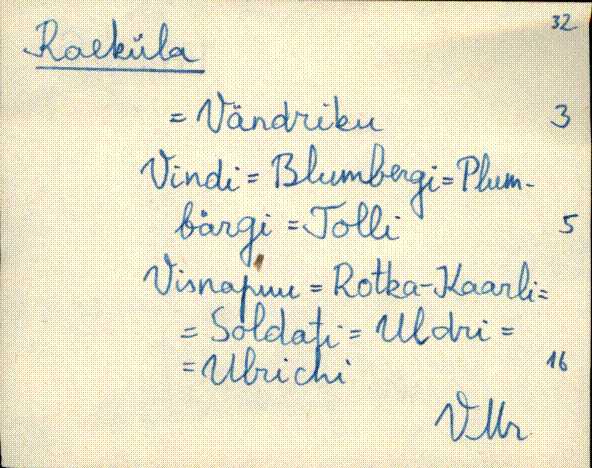 32
Raeküla
= Vändriku 3
Vindi = Blumbergi = Plum-
bärgi = Tolli 5
Visnapuu = Rotka-Kaarli =
= Soldaţi = Uldri =
= Ulrichi 16
VMr